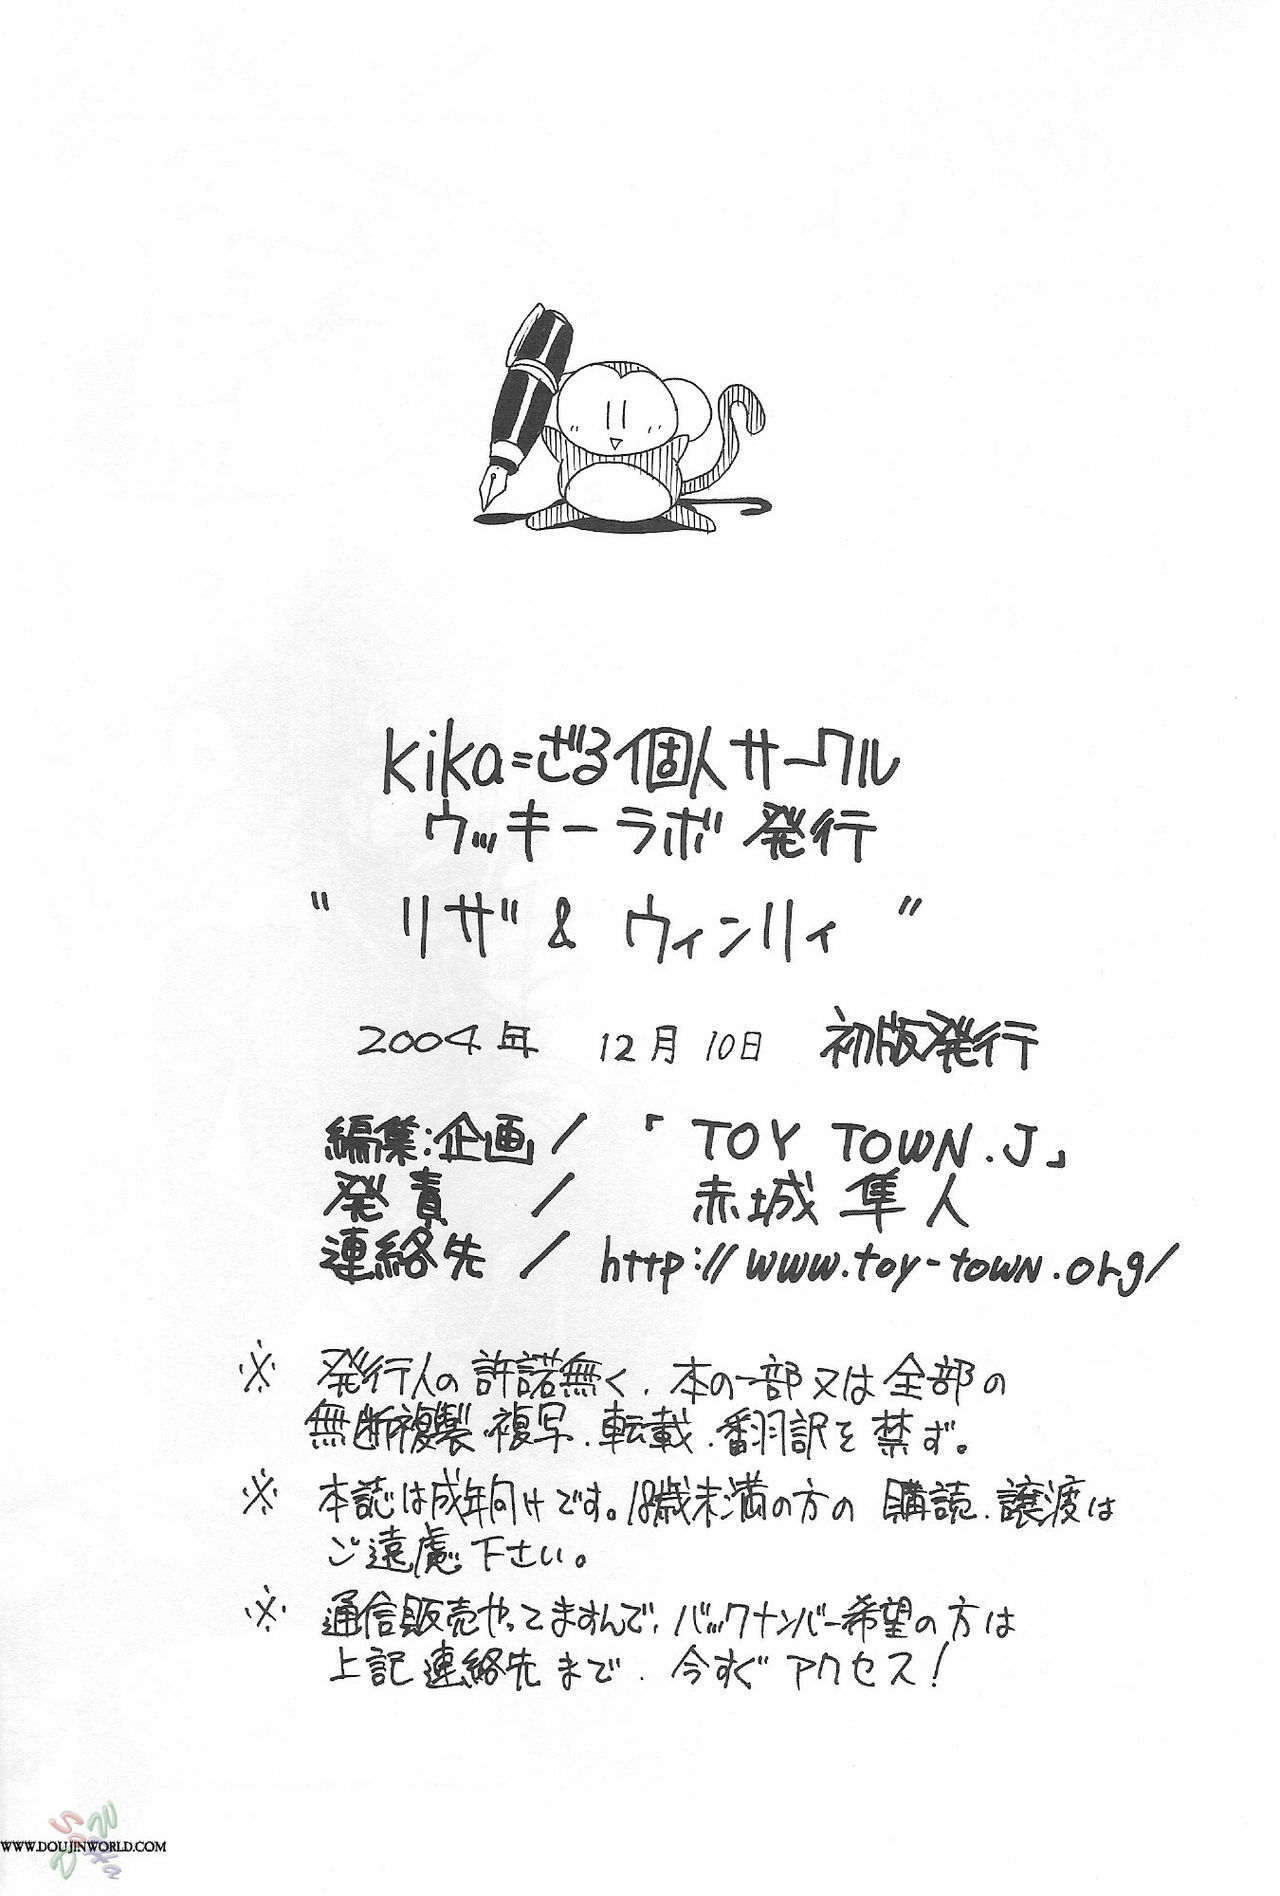 kika=ざる個人サークル
ウッキーラボ 発行
" リザ & ウィンリィ "
2004年 12月 10日 初版発行
編集:企画 / 「TOY TOWN.J」
発責 / 赤城 隼人
連絡先 / http://www.toy-town.org/
※ 発行人の許諾無く、本の一部又は全部の
無断複製、複写、転載、翻訳を禁ず。
※ 本誌は成年向けです。18歳未満の方の 購読、譲渡は
ご遠慮下さい。
※ 通信販売やってますんで、バックナンバー希望の方は
上記連絡先まで、今すぐアクセス!
WWW.DOUJINWORLD.COM